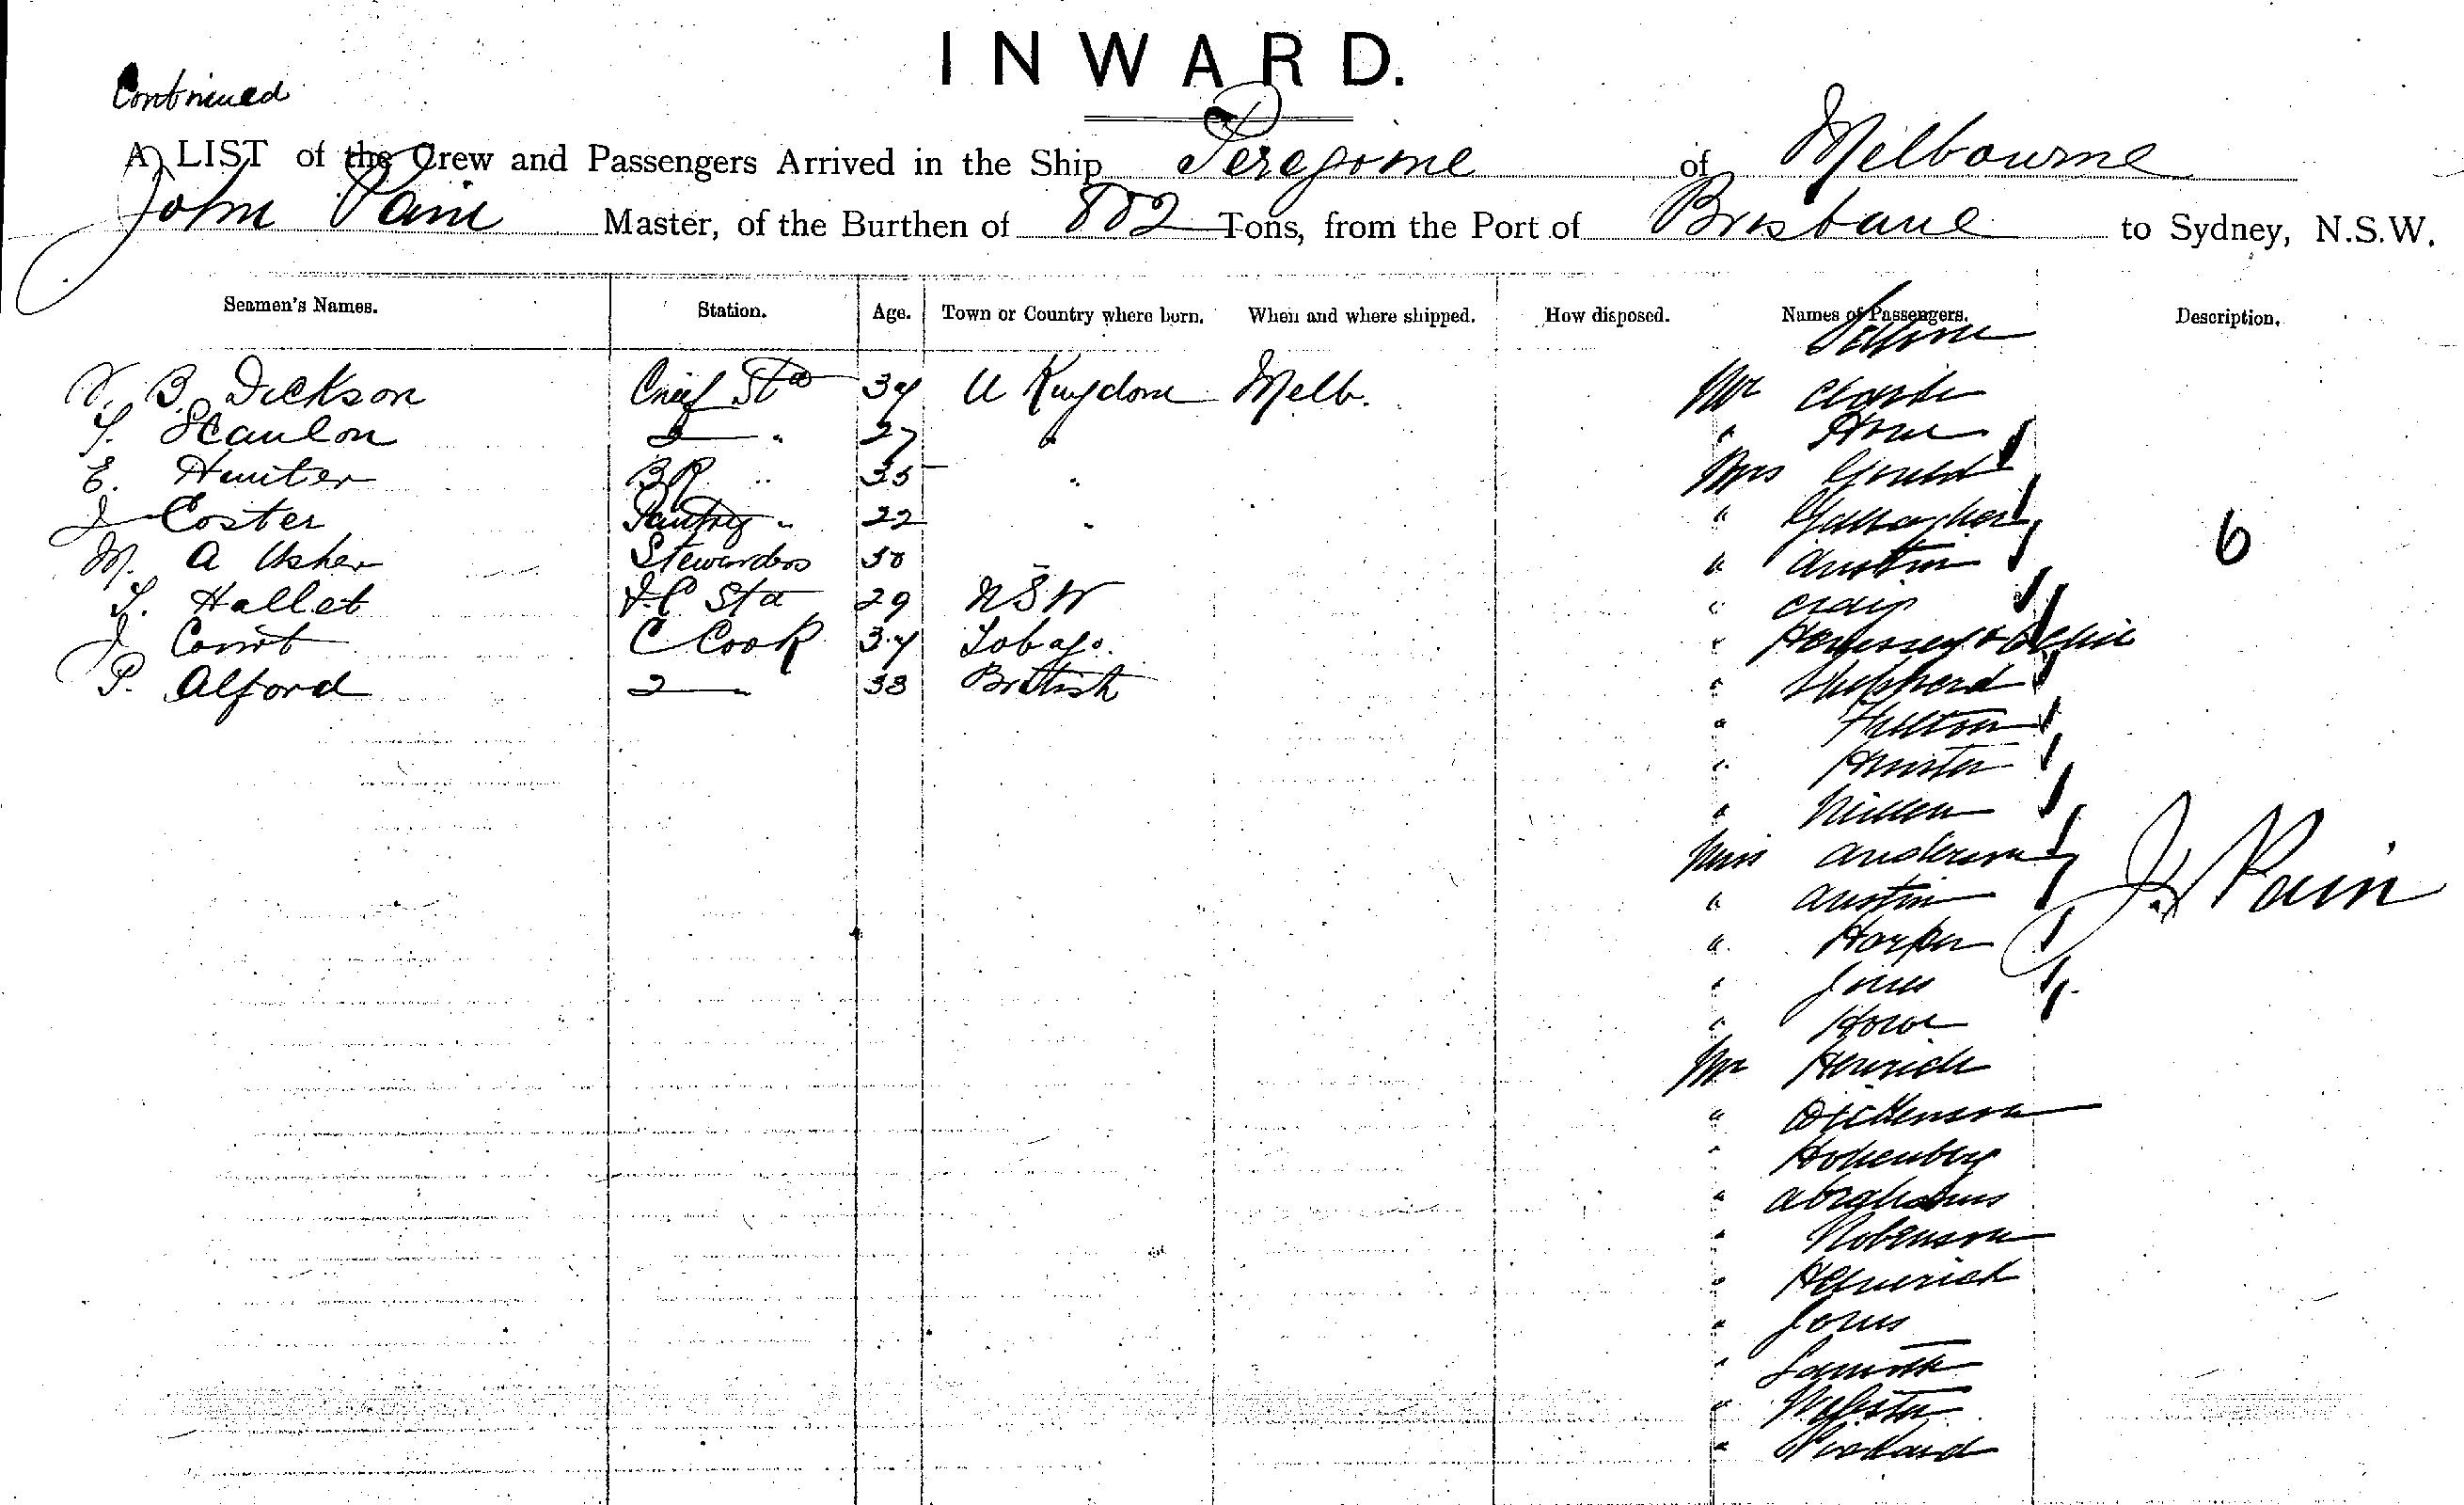 INWARD.
Continued
A LIST of the Crew and Passengers Arrived in the Ship Peregrine of Melbourne
John Pain Master, of the Burthen of 882 Tons, from the Port of Brisbane to Sydney, N.S.W.
Seamen's Names. Station. Age. Town or Country where born. When and where shipped. How disposed. Names of Passengers. Description.
Saloon
B. Dickson Chief Std 34 U Kingdom Melb. Mr Clarke
Scanlon 2 " 27 " " Howe
E. Hunter BR " 35 " Mrs Gould
J Coster Pantry " 22 " " Gallagher
M. A Usher Stewardess 30 " Austin
6
Hallet Std 29 NSW " Craig
J C Cook 34 Tobago. " Hennessey &
P. Alford 2 " 38 British " Shepherd
" Hutton
" Hunter
"
Miss Anderson
J. Pain
" Austin
" Harper
" Jones
" Howe
Mr
" Dickenson
"
" Abrahams
" Robenson
"
" Jones
"
" Webster
"